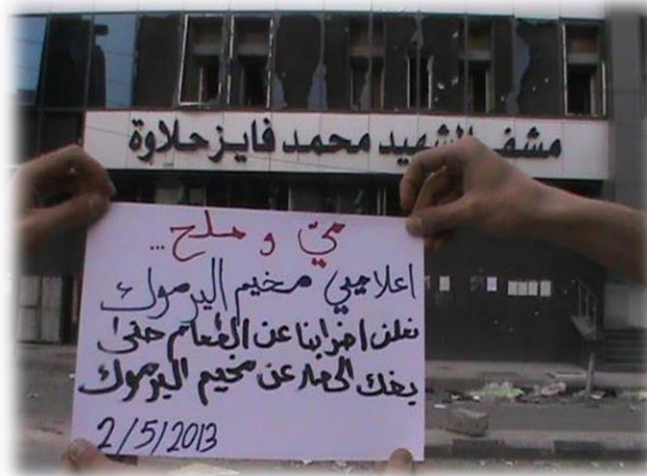 مشفى الشهيد محمد فايز حلاوة
ميّ و ملح ...
اعلاميي مخيم اليرموك
نعلن اضرابنا عن الطعام حتى
يفك الحصار عن مخيم اليرموك
2/5/2013